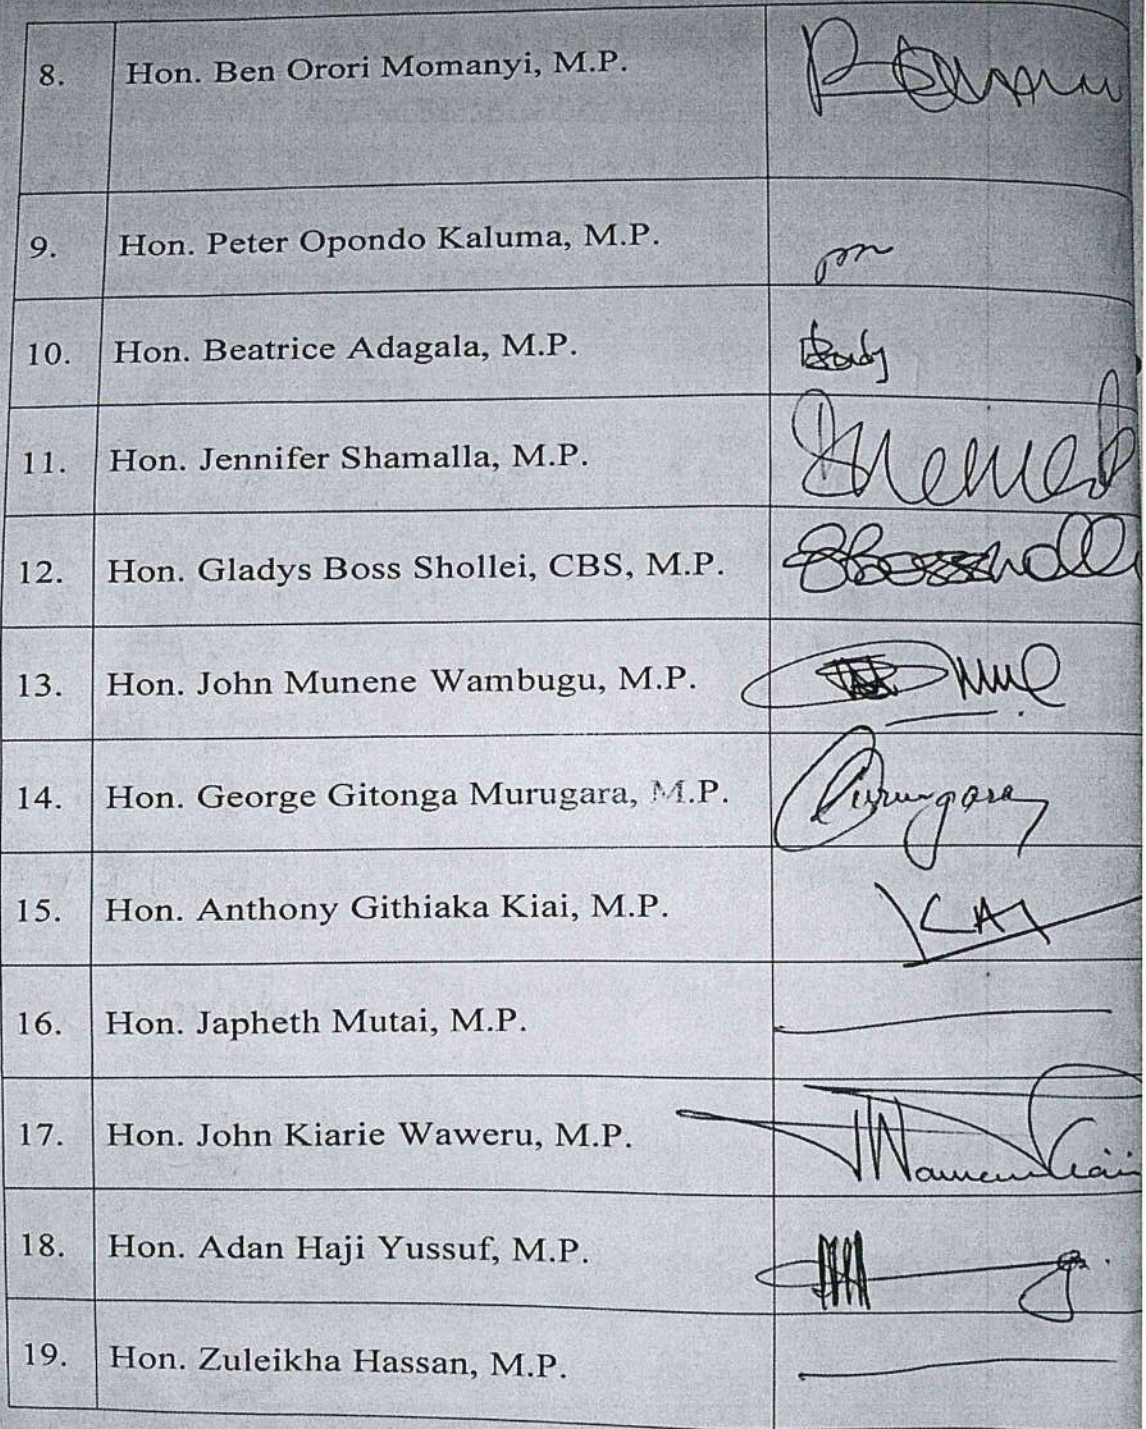 8. Hon. Ben Orori Momanyi, M.P.
9. Hon. Peter Opondo Kaluma, M.P.
10. Hon. Beatrice Adagala, M.P.
11. Hon. Jennifer Shamalla, M.P.
12. Hon. Gladys Boss Shollei, CBS, M.P.
13. Hon. John Munene Wambugu, M.P.
14. Hon. George Gitonga Murugara, M.P. Murugara
15. Hon. Anthony Githiaka Kiai, M.P.
16. Hon. Japheth Mutai, M.P.
17. Hon. John Kiarie Waweru, M.P.
18. Hon. Adan Haji Yussuf, M.P.
19. Hon. Zuleikha Hassan, M.P.